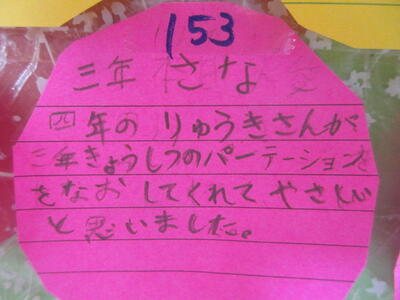 153
三年 さな
四年の りゅうきさんが
三年きょうしつのパーテーションを
をなおしてくれて やさしい
と思いました。